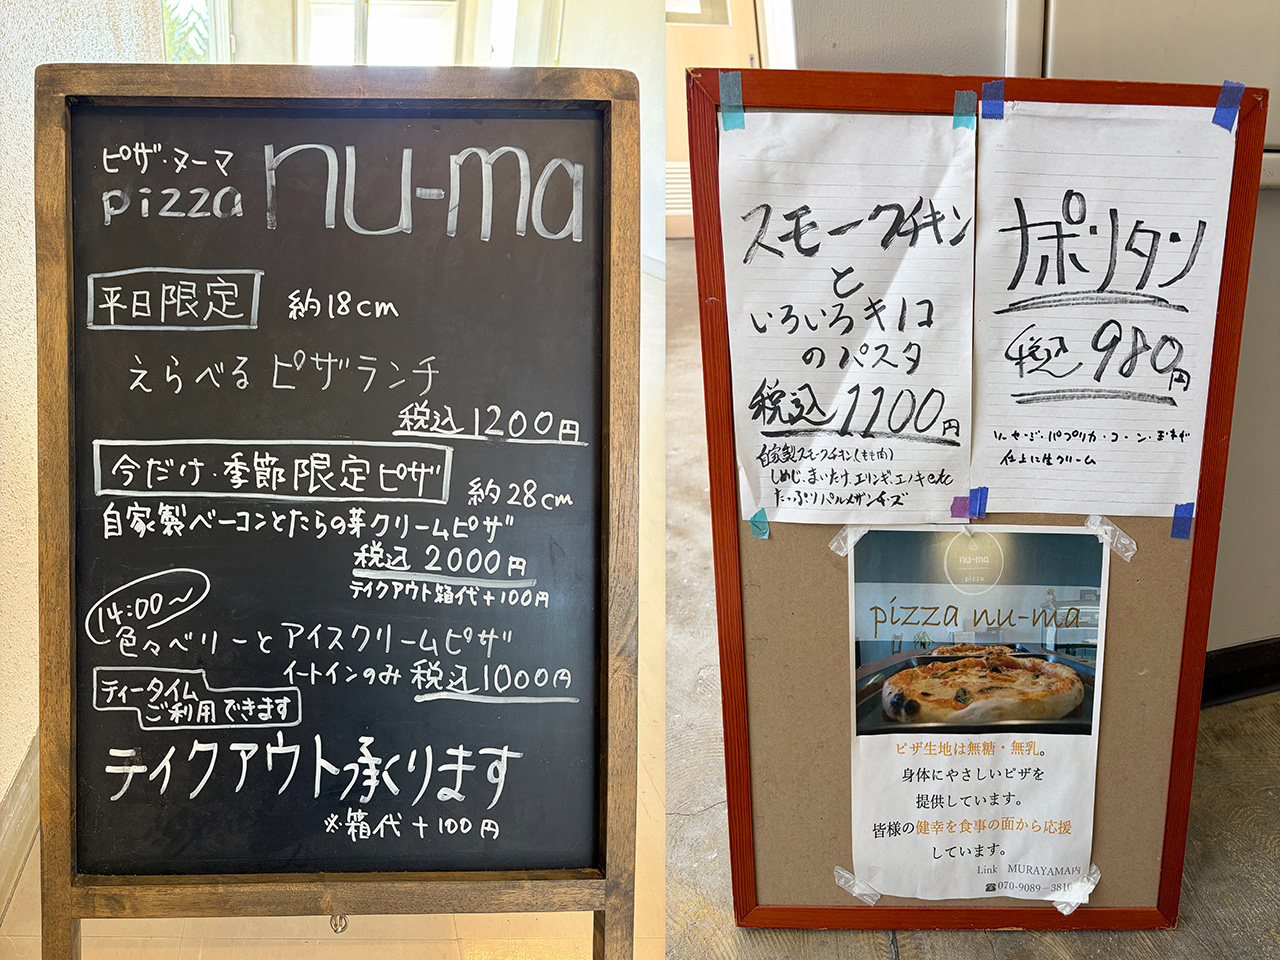 ピザ・ヌーマ
pizza nu-ma
平日限定 約18cm
えらべるピザランチ
税込1200円
今だけ・季節限定ピザ
約28cm
自家製ベーコンとたらの芽クリームピザ
税込 2000円
テイクアウト箱代+100円
14:00〜
色々ベリーとアイスクリームピザ
イートインのみ 税込1000円
ティータイム
ご利用できます
テイクアウト承ります
※箱代+100円
スモークチキン
と
いろいろキノコ
のパスタ
税込1100円
自家製スモークチキン(もも肉)
しめじ、まいたけ、エリンギ、エノキetc
たっぷりパルメザンチーズ
ナポリタン
税込980円
ソーセージ・パプリカ・コーン・玉ねぎ
仕上に生クリーム
nu-ma
pizza
pizza nu-ma
ピザ生地は無糖・無乳。
身体にやさしいピザを
提供しています。
皆様の健幸を食事の面から応援
しています。
Link MURAYAMA内
☎070-9089-3816